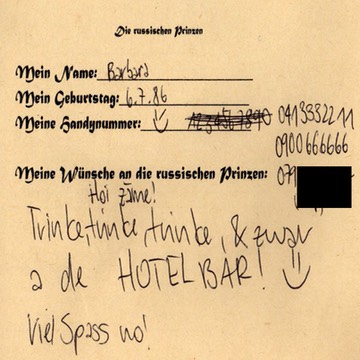 Die russischen Prinzen
Mein Name: Barbara
Mein Geburtstag: 6.7.86
Meine Handynummer: 1234567890 0413332211
0900666666
Meine Wünsche an die russischen Prinzen: 079
Hoi zäme!
Trinke, trinke, trinke, & zwar
a de HOTELBAR!
Viel Spass no!